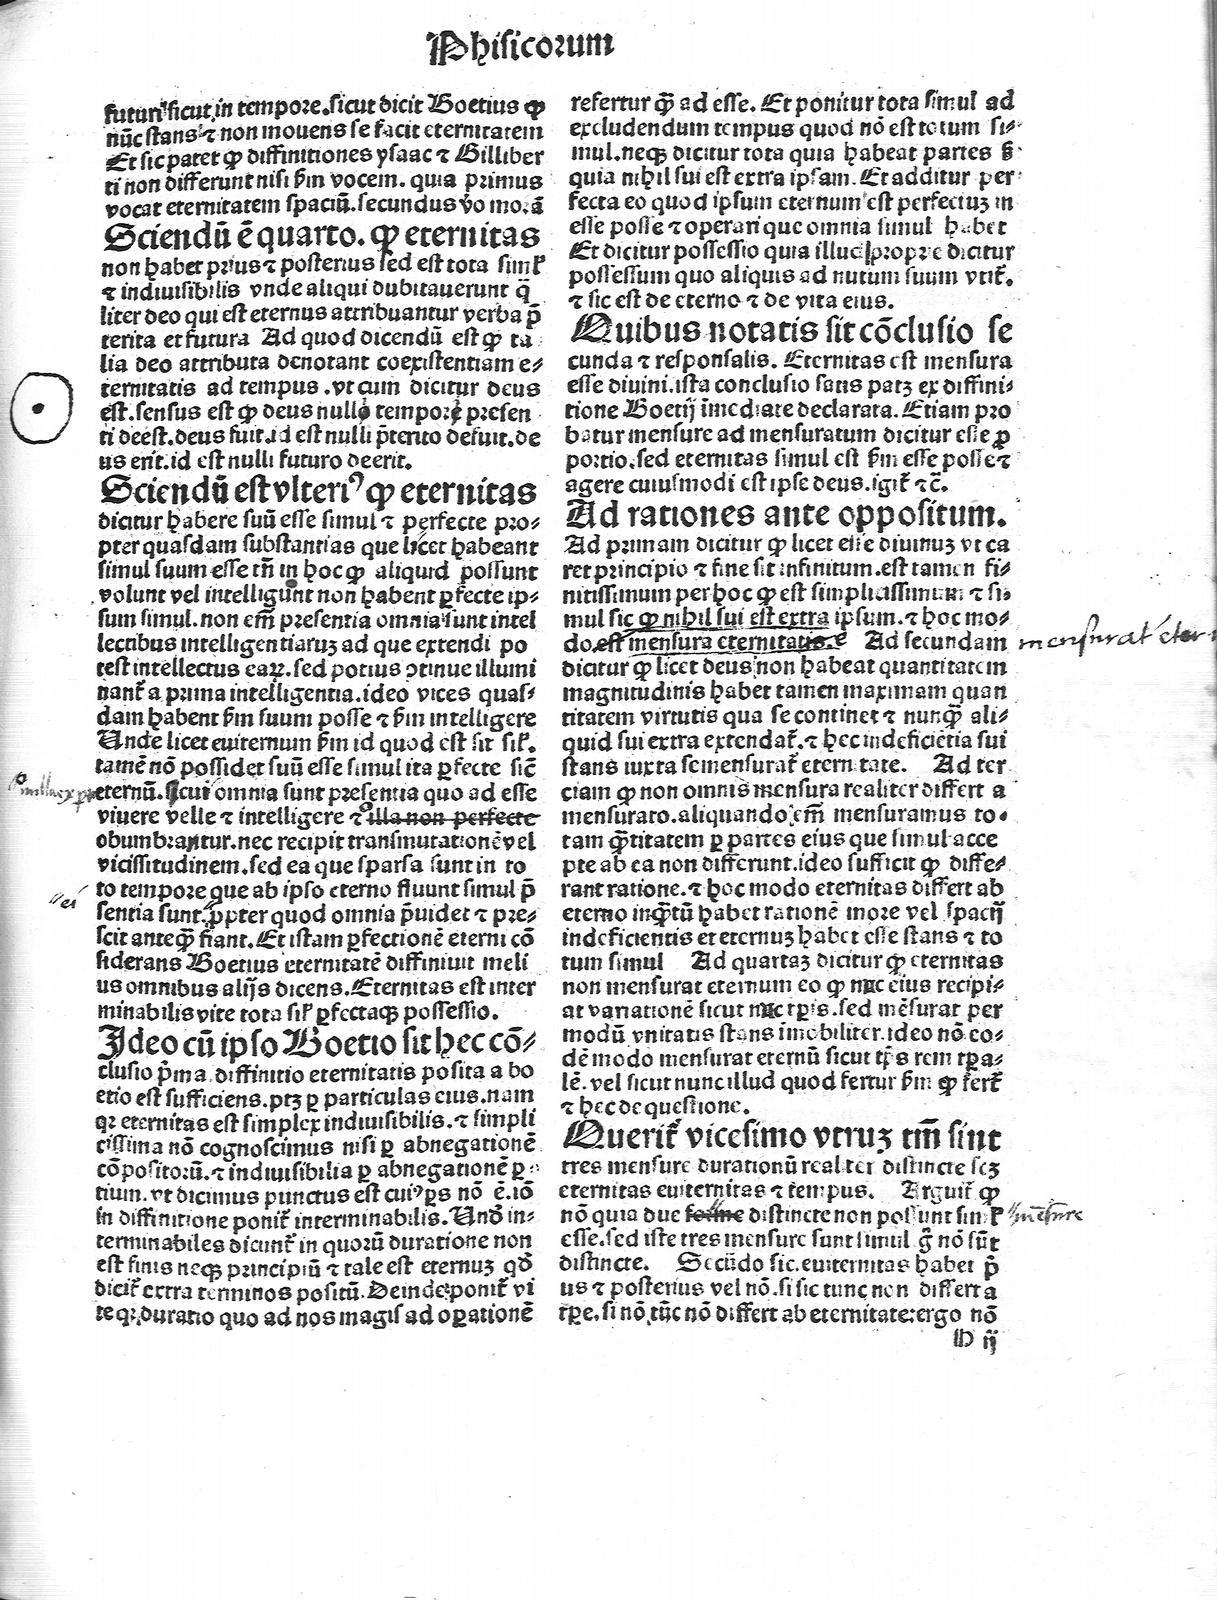 Phisicorum
futuri sicut in tempore. sicut dicit Boetius ꝙ
nūc stans ⁊ non mouens se facit eternitatem
Et sic patet ꝙ diffinitiones ysaac ⁊ Gilliber
ti non differunt nisi ẜm vocem. quia primus
vocat eternitatem spaciū. secundus v̄o morā
Sciendū ē quarto. ꝙ eternitas
non habet prius ⁊ posterius sed est tota simł
⁊ indiuisibilis vnde aliqui dubitauerunt q̄
liter deo qui est eternus attribuantur verba p̄
terita et futura Ad quod dicendū est ꝙ ta
lia deo attributa denotant coexistentiam e⸗
ternitatis ad tempus. vt cum dicitur deus
est. sensus est ꝙ deus nullo tempore presen
ti deest. deus fuit. id est nulli p̄terito defuit. de
us erit. id est nulli futuro deerit.
Sciendū est vlteriꝰ ꝙ eternitas
dicitur habere suū esse simul ⁊ perfecte pro⸗
pter quasdam substantias que licet habeant
simul suum esse tn̄ in hoc ꝙ aliquid possunt
volunt vel intelligunt non habent ꝑfecte ip⸗
sum simul. non em̄ presentia omnia sunt intel
lectibus intelligentiaruꝫ ad que extendi po
test intellectus eaꝝ. sed potius ↄtinue illumi
nant̄ a prima intelligentia. ideo vices quas⸗
dam habent ẜm suum posse ⁊ ẜm intelligere
Unde licet euiternum ẜm id quod est sit sił.
tamē nō possidet suū esse simul ita ꝑfecte sic̄
eternū. sicut omnia sunt presentia quo ad esse
viuere velle ⁊ intelligere ⁊ illa non perfecte
obumbrantur. nec recipit transmutationē vel
vicissitudinem. sed ea que sparsa sunt in to
to tempore que ab ipso eterno fluunt simul p̄
sentia sunt. ꝓpter quod omnia p̄uidet ⁊ pre⸗
scit anteꝙ̄ fiant. Et istam ꝑfectionē eterni cō
siderans Boetius eternitatē diffiniuit meli
us omnibus alijs dicens. Eternitas est inter
minabilis vite tota sił ꝑfectaqꝫ possessio.
Ideo cū ipso Boetio sit hec cō⸗
clusio p̄ma. diffinitio eternitatis posita a bo
etio est sufficiens. ptꝫ ꝑ particulas eius. nam
qꝛ eternitas est simplex indiuisibilis. ⁊ simpli
cissima nō cognoscimus nisi ꝑ abnegationē
cōpositoꝝ. ⁊ indiuisibilia ꝑ abnegationē ꝑ⸗
tium. vt dicimus punctus est cuiꝰ ꝑs nō ē. iō
in diffinitione ponit̄ interminabilis. Unđ in⸗
terminabiles dicunt̄ in quorū duratione non
est finis neqꝫ principiū ⁊ tale est eternuꝫ qđ
dicit̄ extra terminos positū. Deinde ponit̄ vi
te qꝛ duratio quo ad nos magis ad oꝑationē
refertur ꝙ̄ ad esse. Et ponitur tota simul ad
excludendum tempus quod nō est totum si⸗
mul. neqꝫ dicitur tota quia habeat partes ẜ
quia nihil sui est extra ipsam. Et additur per⸗
fecta eo quod ipsum eternum est perfectuꝫ in
esse posse ⁊ operari que omnia simul habet
Et dicitur possessio quia illud proprie dicitur
possessum quo aliquis ad nutum suum vtit̄.
⁊ sic est de eterno ⁊ de vita eius.
Quibus notatis sit cōclusio se
cunda ⁊ responsalis. Eternitas est mensura
esse diuini. ista conclusio satis patꝫ ex diffini⸗
tione Boetij īmediate declarata. Etiam pro
batur mensure ad mensuratum dicitur esse ꝓ
portio. sed eternitas simul est ẜm esse posse ⁊
agere cuiusmodi est ipse deus. igit̄ ⁊ c̄.
Ad rationes ante oppositum.
Ad primam dicitur ꝙ licet esse diuinuꝫ vt ca
ret principio ⁊ fine sit infinitum. est tamen fi⸗
nitissimum per hoc ꝙ est simplicissimum ⁊ si⸗
mul sic ꝙ nihil sui est extra ipsum. ⁊ hoc mo⸗
do est mensura eternitatis. Ad secundam
dicitur ꝙ licet deus non habeat quantitatem
magnitudinis habet tamen maximam quan
titatem virtutis qua se continet ⁊ nunꝙ̄ ali⸗
quid sui extra extendat̄. ⁊ hec indeficiētia sui
stans iuxta se mensurat̄ eternitate. Ad ter
ciam ꝙ non omnis mensura realiter differt a
mensurato. aliquando em̄ mensuramus to⸗
tam q̄titatem ꝑ partes eius que simul acce
pte ab ea non differunt. ideo sufficit ꝙ diffe⸗
rant ratione. ⁊ hoc modo eternitas differt ab
eterno inq̄tū habet rationē more vel spacij
indeficientis et eternuꝫ habet esse stans ⁊ to
tum simul Ad quartaꝫ dicitur ꝙ eternitas
non mensurat eternum eo ꝙ nūc eius recipi⸗
at variationē sicut nūc tꝑis. sed mēsurat per
modū vnitatis stans īmobiliter. ideo nō eo⸗
dē modo mensurat eternū sicut tp̄s rem tꝑa⸗
lē. vel sicut nunc illud quod fertur ẜm ꝙ fert̄
⁊ hec de questione.
Querit̄ vicesimo vtruꝫ tm̄ sint
tres mensure durationū realiter distincte scꝫ
eternitas euiternitas ⁊ tempus. Arguit̄ ꝙ
nō quia due forme distincte non possunt simł
esse. sed iste tres mensure sunt simul g̊ nō sūt
distincte. Secūdo sic. euiternitas habet p̄
us ⁊ posterius vel nō. si sic tunc non differt a
tꝑe. si nō tūc nō differt ab eternitate: ergo nō
mensure
h ij